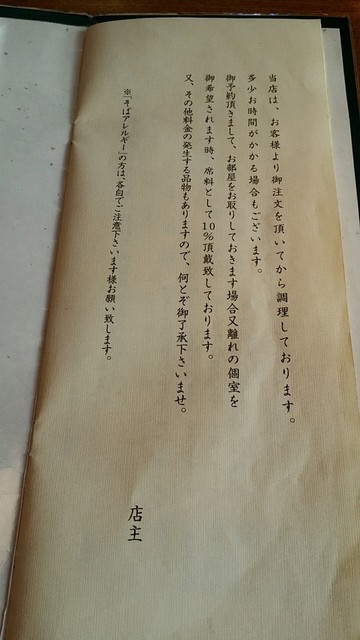 当店は、お客様より御注文を頂いてから調理しております。
多少お時間がかかる場合もございます。
御予約頂きまして、お部屋をお取りしておきます場合又離れの個室を
御希望されます時、席料として10%頂戴致しております。
又、その他料金の発生する品物もありますので、何とぞ御了承下さいませ。
※「そばアレルギー」の方は、各自でご注意下さいます様お願い致します。
店主